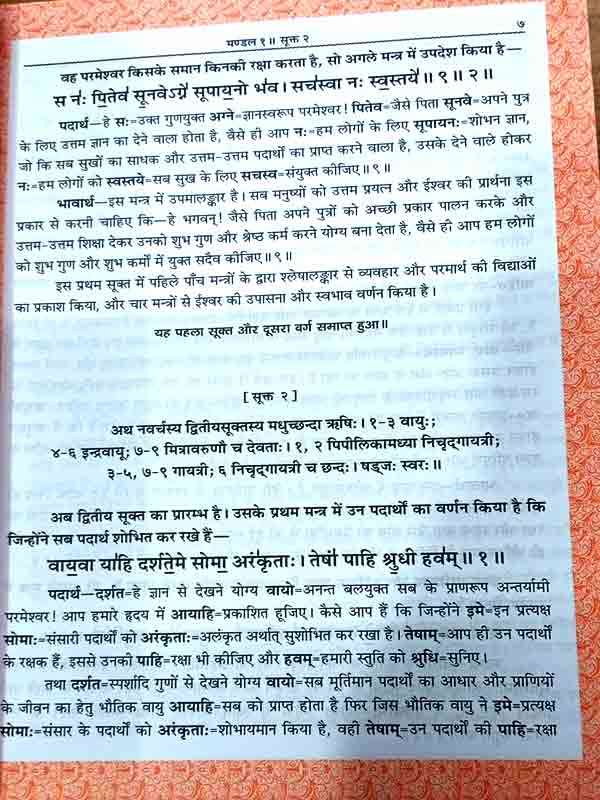 मण्डल १॥ सूक्त २
७
वह परमेश्वर किसके समान किनकी रक्षा करता है, सो अगले मन्त्र में उपदेश किया है—
स नः॑ पि॒तेव॑ सू॒नवेऽग्ने॑ सूपाय॒नो भ॑व। सच॑स्वा नः स्व॒स्तये॑॥ ९॥ २॥
पदार्थ—हे सः=उक्त गुणयुक्त अग्ने=ज्ञानस्वरूप परमेश्वर! पितेव=जैसे पिता सूनवे=अपने पुत्र
के लिए उत्तम ज्ञान का देने वाला होता है, वैसे ही आप नः=हम लोगों के लिए सूपायनः=शोभन ज्ञान,
जो कि सब सुखों का साधक और उत्तम-उत्तम पदार्थों का प्राप्त करने वाला है, उसके देने वाले होकर
नः=हम लोगों को स्वस्तये=सब सुख के लिए सचस्व=संयुक्त कीजिए॥९॥
भावार्थ—इस मन्त्र में उपमालङ्कार है। सब मनुष्यों को उत्तम प्रयत्न और ईश्वर की प्रार्थना इस
प्रकार से करनी चाहिए कि—हे भगवन्! जैसे पिता अपने पुत्रों को अच्छी प्रकार पालन करके और
उत्तम-उत्तम शिक्षा देकर उनको शुभ गुण और श्रेष्ठ कर्म करने योग्य बना देता है, वैसे ही आप हम लोगों
को शुभ गुण और शुभ कर्मों में युक्त सदैव कीजिए॥९॥
इस प्रथम सूक्त में पहिले पाँच मन्त्रों के द्वारा श्लेषालङ्कार से व्यवहार और परमार्थ की विद्याओं
का प्रकाश किया, और चार मन्त्रों से ईश्वर की उपासना और स्वभाव वर्णन किया है।
यह पहला सूक्त और दूसरा वर्ग समाप्त हुआ॥
[ सूक्त २ ]
अथ नवर्चस्य द्वितीयसूक्तस्य मधुच्छन्दा ऋषिः। १-३ वायुः;
४-६ इन्द्रवायू; ७-९ मित्रावरुणौ च देवताः। १, २ पिपीलिकामध्या निचृद्गायत्री;
३-५, ७-९ गायत्री; ६ निचृद्गायत्री च छन्दः। षड्जः स्वरः॥
अब द्वितीय सूक्त का प्रारम्भ है। उसके प्रथम मन्त्र में उन पदार्थों का वर्णन किया है कि
जिन्होंने सब पदार्थ शोभित कर रखे हैं—
वाय॒वा या॑हि दर्शते॒मे सोमा॒ अरं॑कृताः। तेषां॑ पाहि श्रु॒धी हव॑म्॥ १॥
पदार्थ—दर्शत=हे ज्ञान से देखने योग्य वायो=अनन्त बलयुक्त सब के प्राणरूप अन्तर्यामी
परमेश्वर! आप हमारे हृदय में आयाहि=प्रकाशित हूजिए। कैसे आप हैं कि जिन्होंने इमे=इन प्रत्यक्ष
सोमाः=संसारी पदार्थों को अरंकृताः=अलंकृत अर्थात् सुशोभित कर रखा है। तेषाम्=आप ही उन पदार्थों
के रक्षक हैं, इससे उनकी पाहि=रक्षा भी कीजिए और हवम्=हमारी स्तुति को श्रुधि=सुनिए।
तथा दर्शत=स्पर्शादि गुणों से देखने योग्य वायो=सब मूर्तिमान पदार्थों का आधार और प्राणियों
के जीवन का हेतु भौतिक वायु आयाहि=सब को प्राप्त होता है फिर जिस भौतिक वायु ने इमे=प्रत्यक्ष
सोमाः=संसार के पदार्थों को अरंकृताः=शोभायमान किया है, वही तेषाम्=उन पदार्थों की पाहि=रक्षा